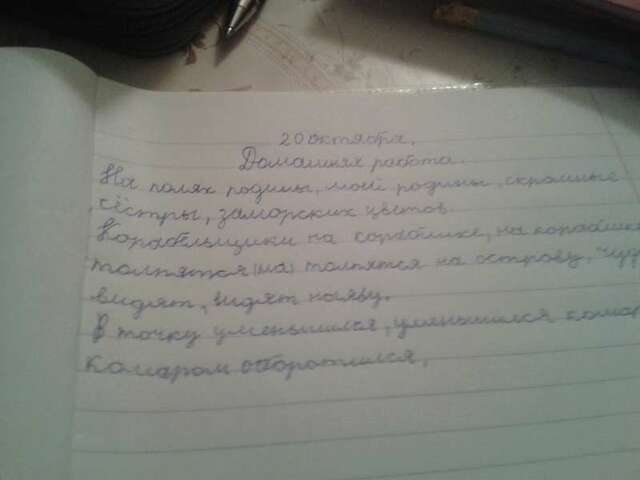 20 октября.
Домашняя работа.
На полях родины, моей родины, скромные
сёстры, заморских цветов.
Корабельщики на кораблике, на кораблике
толпятся (на) толпятся на острову. Чуд
видят, видят наяву.
В точку уменьшился, уменьшился комар
комаром оборотился,